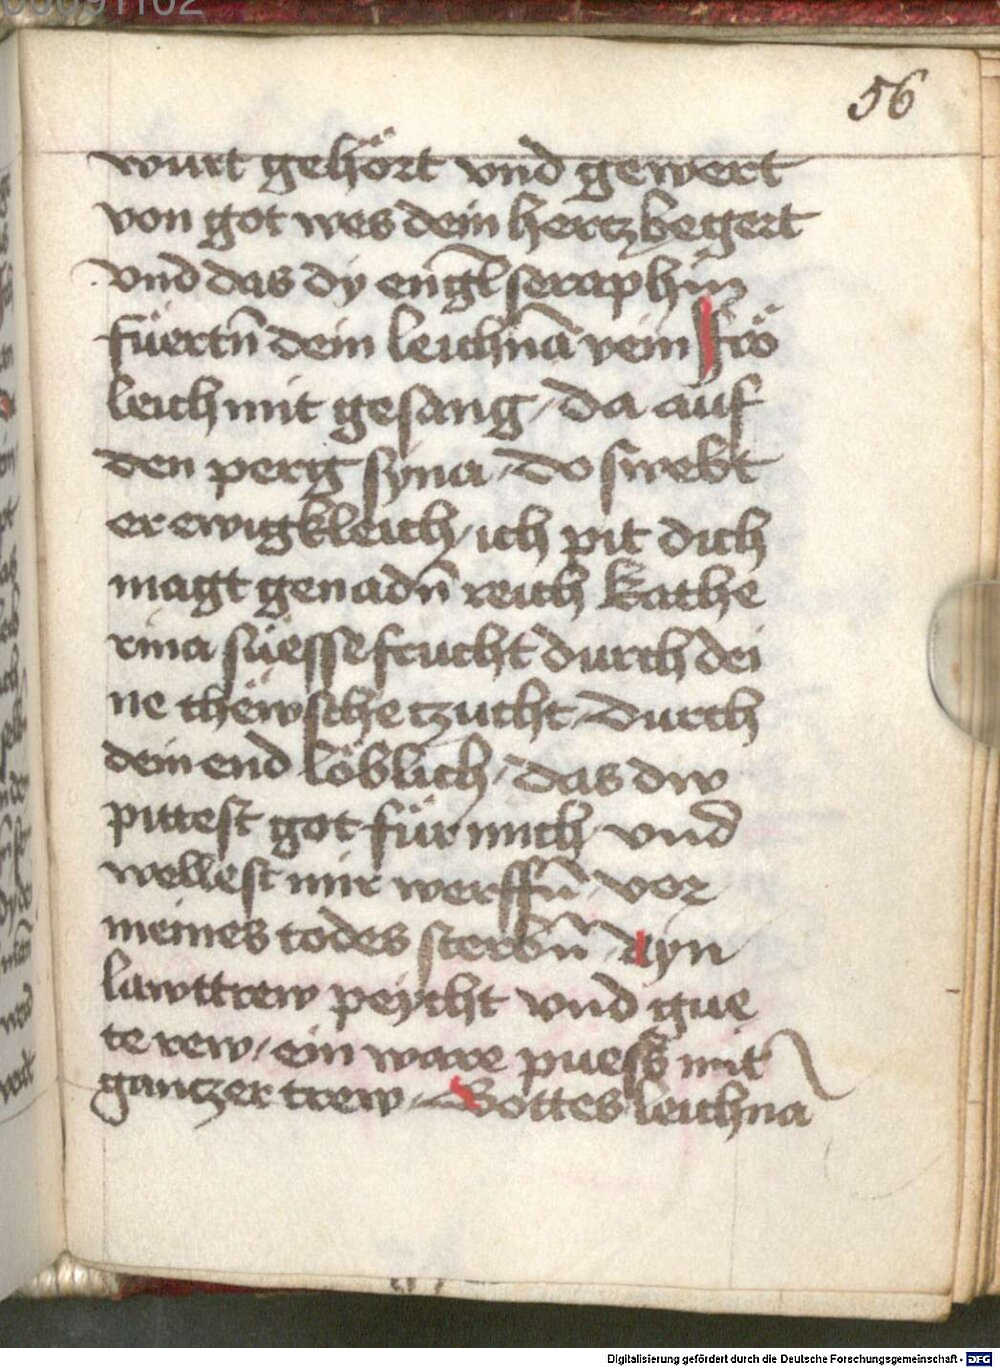 56
wurt gehört vnd gewert
von got wes dein hertz begert
vnd das dy engl seraphin
füertn̄ dein leichnā vein frö
leich mit gesang / da auf
den perg syna / do swebt
er ewigkleich / ich pit dich
magt genadn̄ reich kathe
rina süesse frucht durch dei
ne thëwsche tzucht / durch
dein end löblich / das diw
pittest got für mich vnd
wellest mir werffn̄ vor
meines todes sterbn̄ ayn
lawttrew peycht vnd gue
te rew / ein ware puess mit
gantzer trew / Gottes leichnā
Digitalisierung gefördert durch die Deutsche Forschungsgemeinschaft - DFG